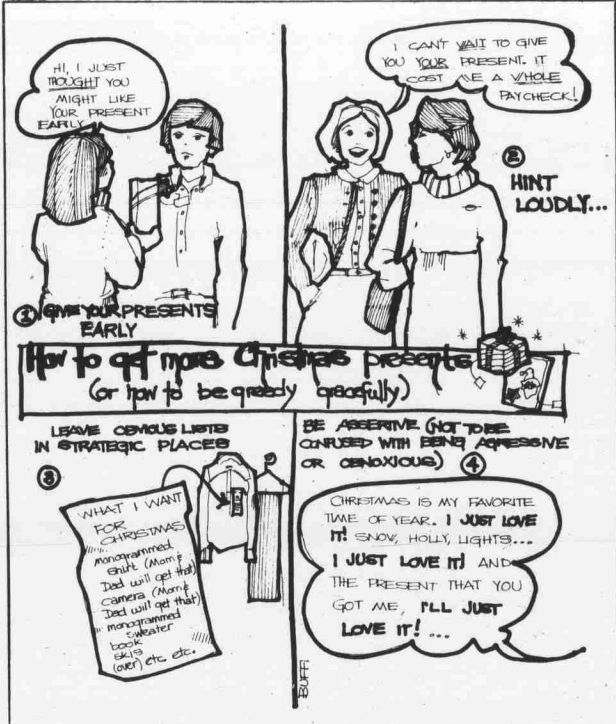 HI, I JUST
THOUGHT YOU
MIGHT LIKE
YOUR PRESENT
EARLY
① GIVE YOUR PRESENTS
EARLY
I CAN'T WAIT TO GIVE
YOU YOUR PRESENT. IT
COST ME A WHOLE
PAYCHECK!
②
HINT
LOUDLY...
How to get more Christmas presents
(or how to be greedy gracefully)
LEAVE OBVIOUS LISTS
IN STRATEGIC PLACES
③
WHAT I WANT
FOR
CHRISTMAS
monogrammed
shirt (Mom &
Dad will get that)
camera (Mom &
Dad will get that)
monogrammed
sweater
book
skis
(over) etc. etc.
BE ASSERTIVE (NOT TO BE
CONFUSED WITH BEING AGRESSIVE
OR OBNOXIOUS) ④
CHRISTMAS IS MY FAVORITE
TIME OF YEAR. I JUST LOVE
IT! SNOW, HOLLY, LIGHTS...
I JUST LOVE IT! AND
THE PRESENT THAT YOU
GOT ME, I'LL JUST
LOVE IT! ...
BUFF.